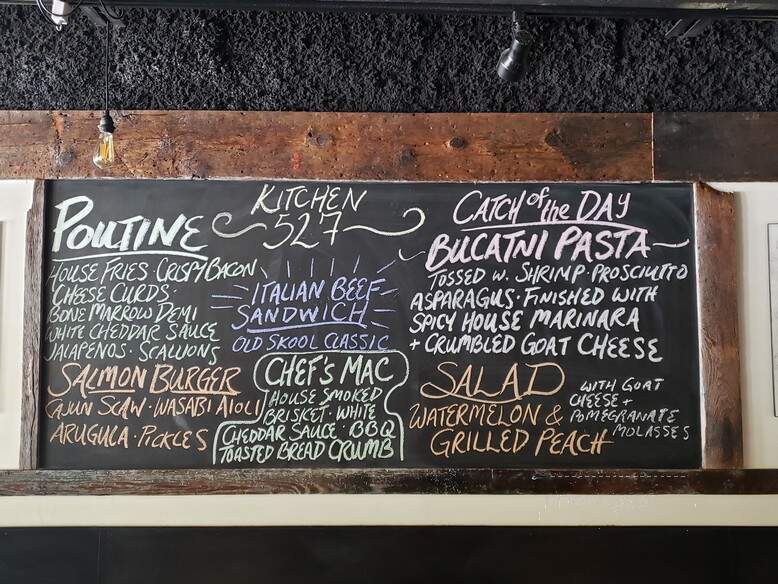 KITCHEN
527
POUTINE
HOUSE FRIES CRISPY BACON
CHEESE CURDS.
BONE MARROW DEMI
WHITE CHEDDAR SAUCE
JALAPENOS · SCALLIONS
SALMON BURGER
CAJUN SLAW · WASABI AIOLI
ARUGULA · PICKLES
ITALIAN BEEF
SANDWICH
OLD SKOOL CLASSIC
CHEF'S MAC
HOUSE SMOKED
BRISKET · WHITE
CHEDDAR SAUCE · BBQ
TOASTED BREAD CRUMB
CATCH of the DAY
BUCATNI PASTA
TOSSED W. SHRIMP · PROSCIUTTO
ASPARAGUS · FINISHED WITH
SPICY HOUSE MARINARA
+ CRUMBLED GOAT CHEESE
SALAD
WATERMELON &
GRILLED PEACH
WITH GOAT
CHEESE +
POMEGRANATE
MOLASSES